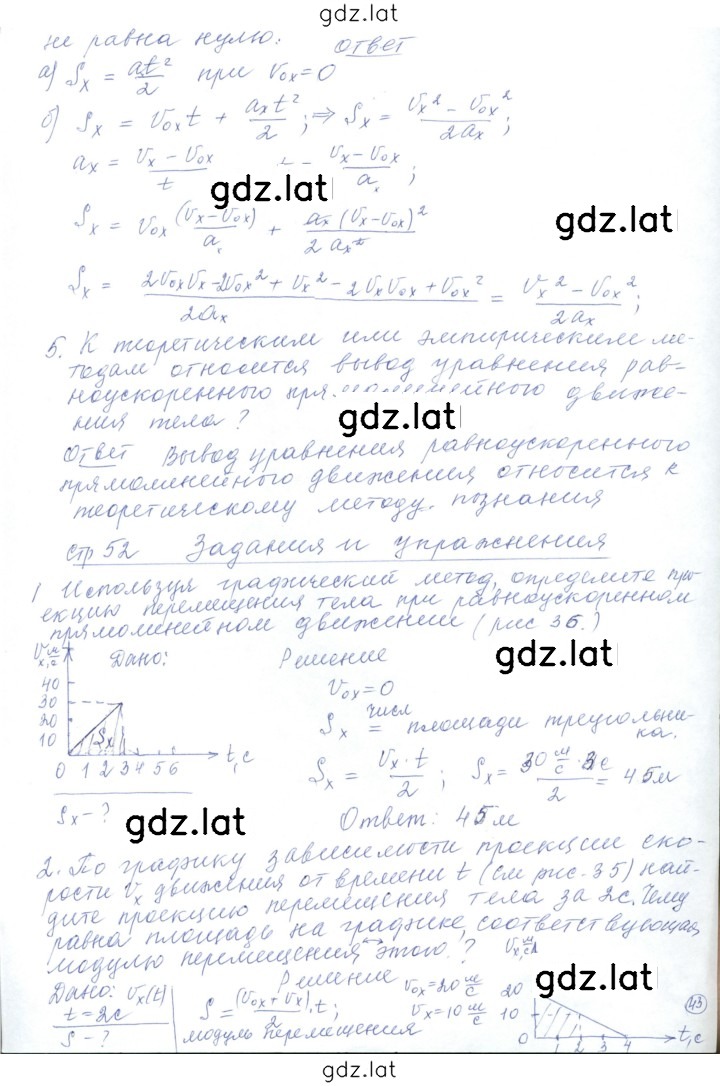 gdz.lat
не равна нулю. Ответ
а) Sx = at²/2 при V₀x=0
б) Sx = V₀xt + axt²/2; ⇒ Sx = (Vx² − V₀x²)/2ax;
ax = (Vx − V₀x)/t (Vx−V₀x)/a;
gdz.lat
gdz.lat
Sx = V₀x (Vx−V₀x)/a + ax(Vx−V₀x)²/2ax²
Sx = (2V₀xVx−2V₀x²+Vx²−2VxV₀x+V₀x²)/2ax = (Vx²−V₀x²)/2ax;
5. К теоретическим или эмпирическим ме-
тодам относится вывод уравнения рав-
ноускоренного прямолинейного движе-
ния тела?
gdz.lat
Ответ Вывод уравнения равноускоренного
прямолинейного движения относится к
теоретическому методу. познания
стр 52 Задания и упражнения
1 Используя графический метод, определите про-
екцию перемещения тела при равноускоренном
прямолинейном движении (рис 36.)
gdz.lat
Vx, м/с Дано: Решение
40
30
20
10
Sx
0 1 2 3 4 5 6 t,c
V₀x=0
Sx числ = площади треугольни-
ка.
Sx = Vx·t/2; Sx = 30 м/с · 3с/2 = 45м
Sx − ?
gdz.lat
Ответ: 45 м
gdz.lat
2. По графику зависимости проекции ско-
рости Vx движения от времени t (см рис. 35) най-
дите проекцию перемещения тела за 2с. Чему
равна площадь на графике, соответствующая
модулю перемещения этого?
Дано: Vx(t) Решение
t = 2c
S − ?
S = (V₀x + Vx)/2 · t;
модуль перемещения
V₀x=20 м/с
Vx=10 м/с
20
10
1 2 3 4 t,c
43
gdz.lat